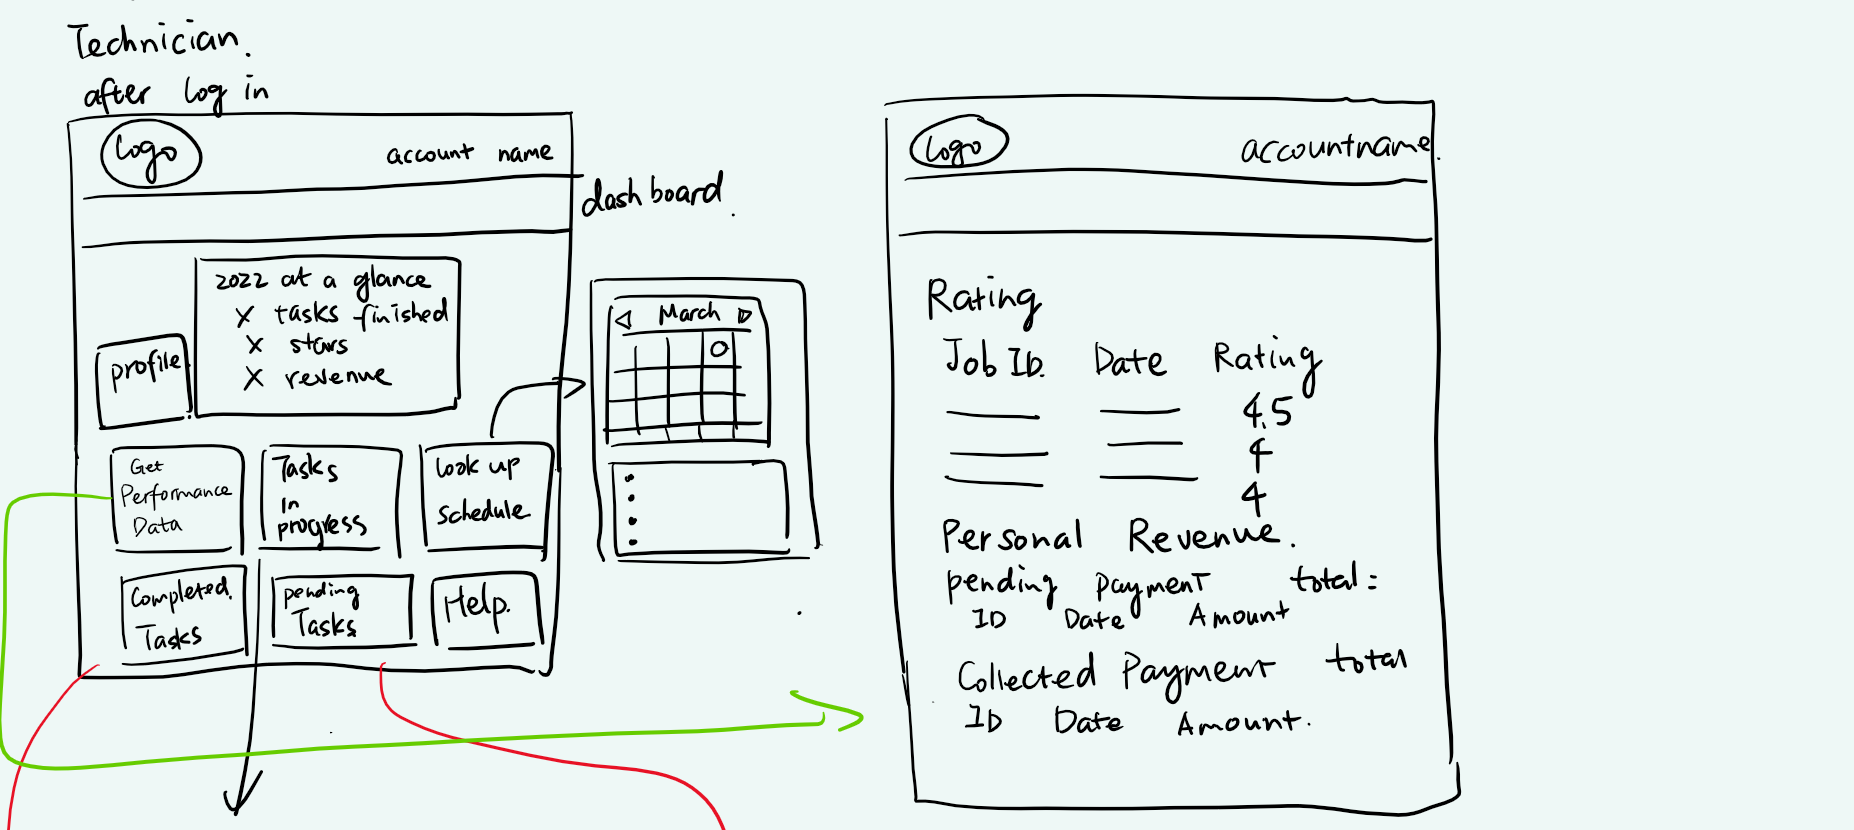 Technician.
after log in
Logo
account name
dashboard.
2022 at a glance
X tasks finished
X stars
X revenue
profile
Get
Performance
Data
Tasks
In
progress
Look up
schedule
Completed.
Tasks
pending
Tasks
Help.
March
Logo
accountname.
Rating
Job ID. Date Rating
4.5
4
4
Personal Revenue.
pending payment total:
ID Date Amount
Collected Payment total
ID Date Amount.